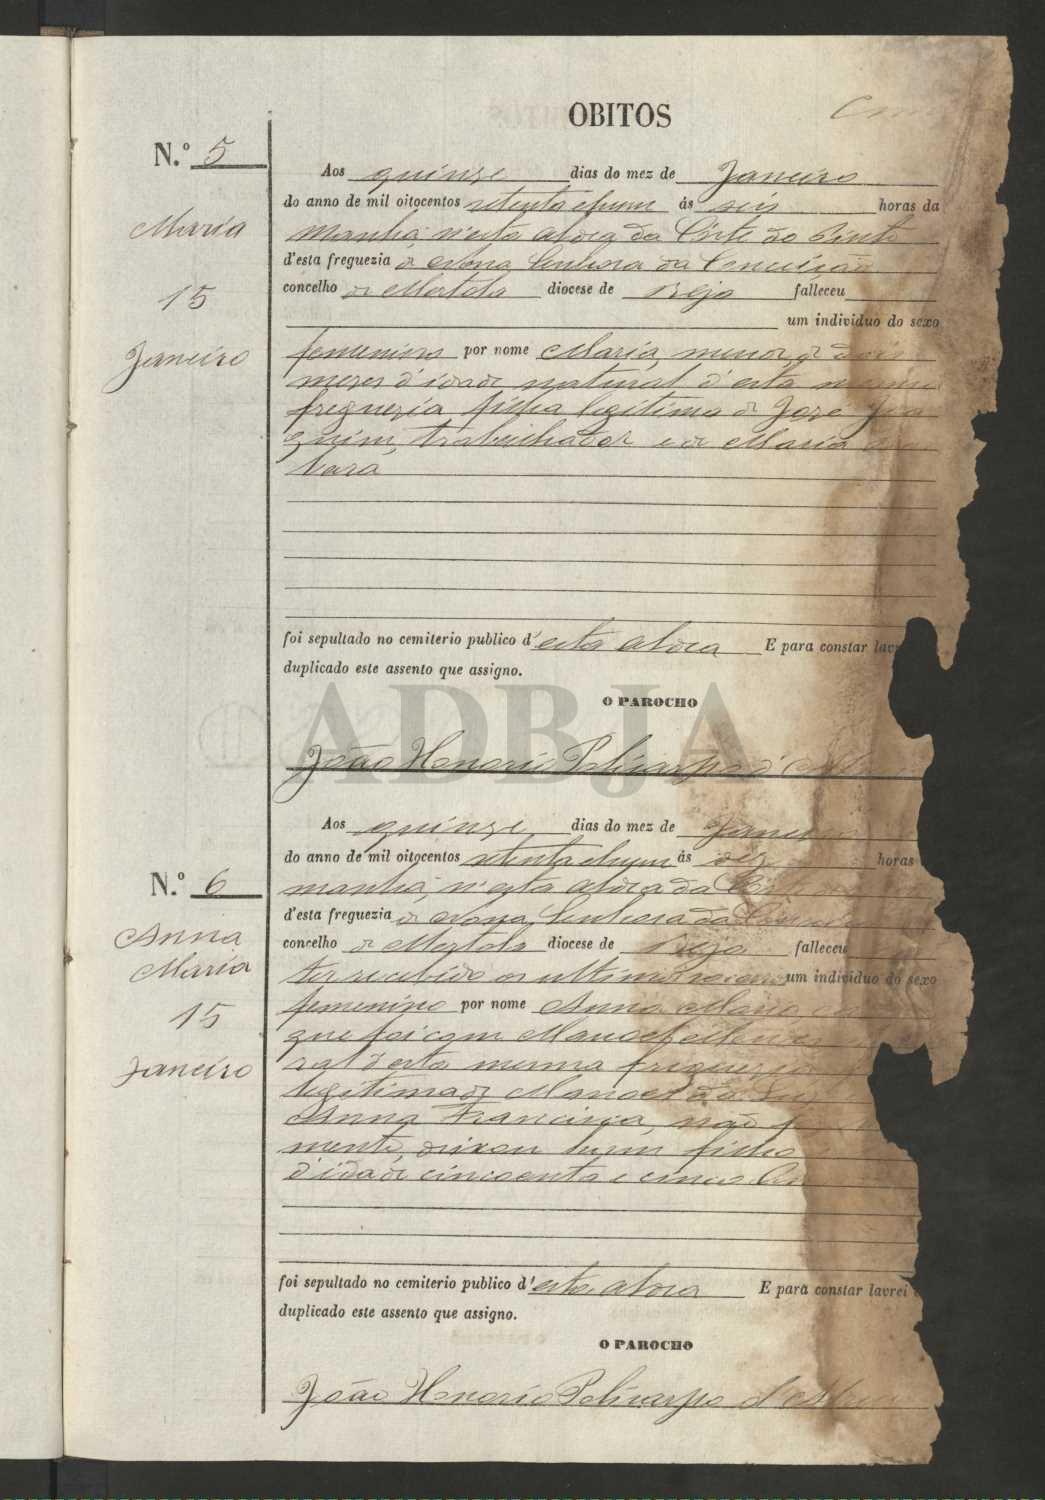 OBITOS
N.º 5
Maria
15
Janeiro
Aos quinze dias do mez de Janeiro
do anno de mil oitocentos setenta e hum ás seis horas da
manhã, n'esta aldea da Côrte do Pinto
d'esta freguezia de Nossa Senhora da Conceição
concelho de Mertola diocese de Beja falleceu
um individuo do sexo
femenino por nome Maria, menor, de dois
mezes d'idade, natural d'esta mesma
freguezia, filha legitima de José Joa
quim, trabalhador e de Maria
foi sepultado no cemiterio publico d'esta aldea E para constar lavr
duplicado este assento que assigno.
O PAROCHO
João Honorio Policarpo d'
ADBJA
N.º 6
Anna
Maria
15
Janeiro
Aos quinze dias do mez de Janeiro
do anno de mil oitocentos setenta e hum ás dez horas
manhã, n'esta aldea da Côrte do
d'esta freguezia de Nossa Senhora da Conceição
concelho de Mertola diocese de Beja falleceu
ter recebido os ultimos um individuo do sexo
femenino por nome Anna Maria
que foi com Manoel
ral d'esta mesma freguezia
legitima de Manoel da
Anna Francisca, não
mento, deixou hum filho
d'idade cincoenta e cinco
foi sepultado no cemiterio publico d'esta aldea E para constar lavrei
duplicado este assento que assigno.
O PAROCHO
João Honorio Policarpo d'